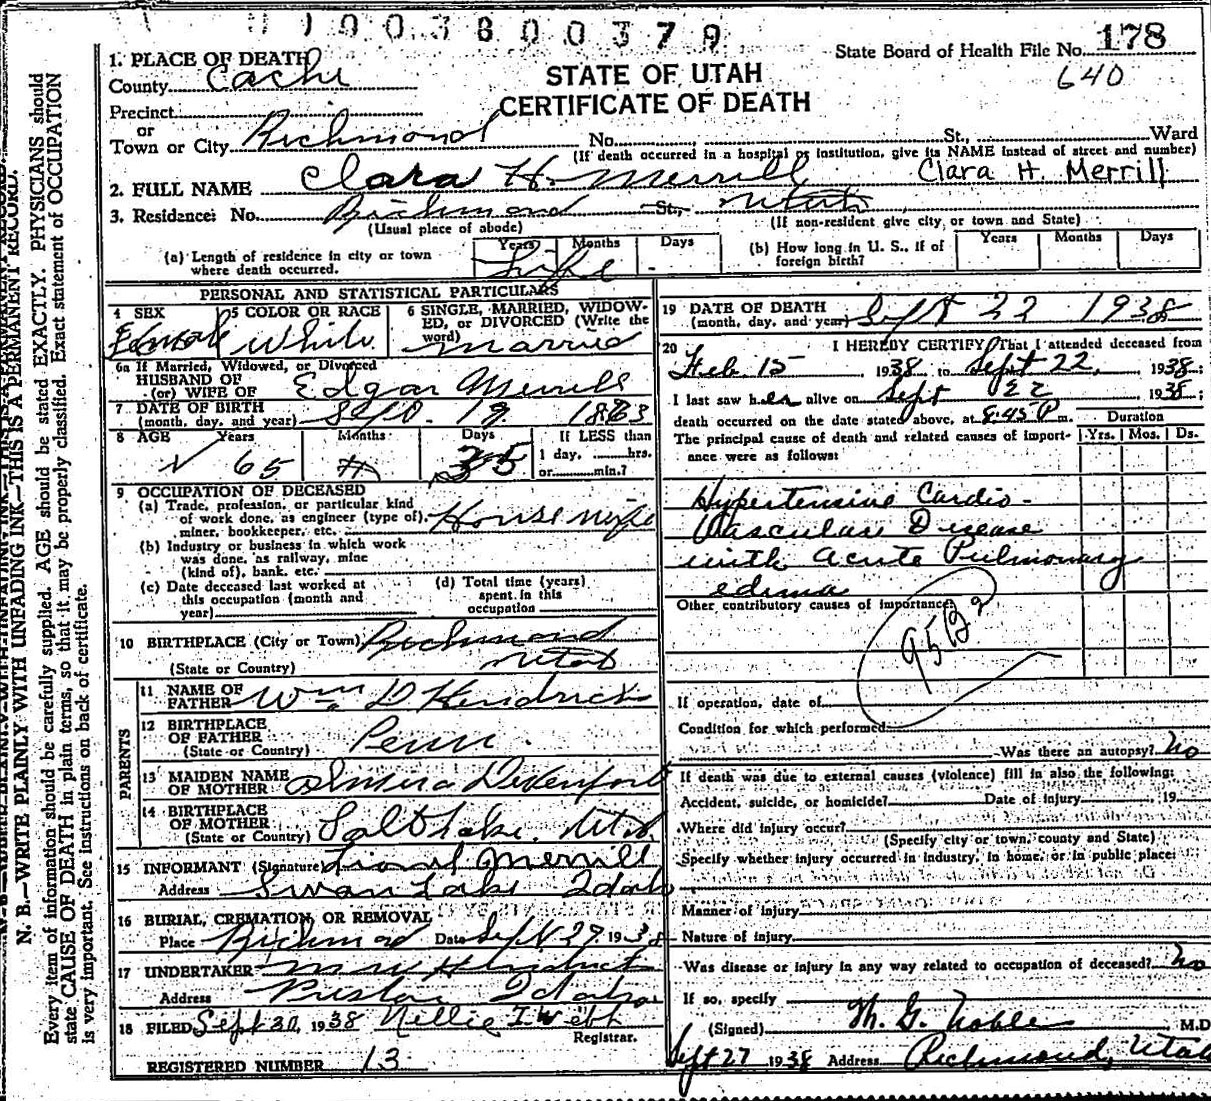 1003800379
State Board of Health File No. 178
640
STATE OF UTAH
CERTIFICATE OF DEATH
1. PLACE OF DEATH
County Cache
Precinct
or
Town or City Richmond No. St., Ward
(If death occurred in a hospital or institution, give its NAME instead of street and number)
2. FULL NAME Clara H. Merrill Clara H. Merrill
3. Residence: No. Richmond St., Utah
(Usual place of abode) (If non-resident give city, or town and State)
(a) Length of residence in city or town where death occurred. Years Months Days Life
(b) How long in U. S., if of foreign birth? Years Months Days
PERSONAL AND STATISTICAL PARTICULARS
4 SEX Female
5 COLOR OR RACE White
6 SINGLE, MARRIED, WIDOWED, or DIVORCED (Write the word) Married
6a If Married, Widowed, or Divorced
HUSBAND OF
(or) WIFE OF Edgar Merrill
7 DATE OF BIRTH
(month, day, and year) Sept. 19
8 AGE Years Months Days If LESS than
65 1 day, hrs.
or min.?
9 OCCUPATION OF DECEASED
(a) Trade, profession, or particular kind
of work done, as engineer (type of), Housewife
miner, bookkeeper, etc.
(b) Industry or business in which work
was done, as railway, mine
(kind of), bank, etc.
(c) Date deceased last worked at
this occupation (month and
year)
(d) Total time (years)
spent in this
occupation
10 BIRTHPLACE (City or Town) Richmond
(State or Country) Utah
PARENTS
11 NAME OF
FATHER Wm D Hendricks
12 BIRTHPLACE
OF FATHER
(State or Country) Penn.
13 MAIDEN NAME
OF MOTHER Almira Devenport
14 BIRTHPLACE
OF MOTHER
(State or Country) Salt Lake Utah
15 INFORMANT (Signature) Lionel Merrill
Address Swan Lake Idaho
16 BURIAL, CREMATION, OR REMOVAL
Place Richmond Date Sept 27 1938
17 UNDERTAKER
Address Preston Idaho
18 FILED Sept 30, 1938 Nellie I. Webb
Registrar.
REGISTERED NUMBER 13
19 DATE OF DEATH
(month, day, and year) Sept 22 1938
20 I HEREBY CERTIFY, That I attended deceased from
Feb. 15 1938 to Sept 22, 1938;
I last saw her alive on Sept 22, 1938;
death occurred on the date stated above, at 8:45 P m.
The principal cause of death and related causes of importance were as follows:
Duration
Yrs. Mos. Ds.
Hypertensive Cardio-
Vascular Disease
with Acute Pulmonary
edema
Other contributory causes of importance:
If operation, date of
Condition for which performed
Was there an autopsy? No
If death was due to external causes (violence) fill in also the following:
Accident, suicide, or homicide? Date of injury , 19
Where did injury occur?
(Specify city or town, county and State)
Specify whether injury occurred in industry, in home, or in public place:
Manner of injury
Nature of injury
Was disease or injury in any way related to occupation of deceased? No
If so, specify
(Signed) M. G. Noble M.D
Sept 27 1938 Address Richmond, Utah
N. B.—WRITE PLAINLY WITH UNFADING INK—THIS IS A PERMANENT RECORD.
Every item of information should be carefully supplied. AGE should be stated EXACTLY. PHYSICIANS should
state CAUSE OF DEATH in plain terms, so that it may be properly classified. Exact statement of OCCUPATION
is very important. See instructions on back of certificate.